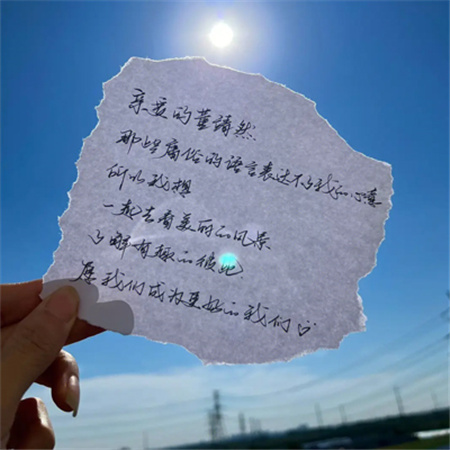 亲爱的董靖然:
那些庸俗的语言表达不了我的心意
所以我想
一起去看美丽的风景
了解有趣的彼此
愿我们成为更好的我们♡